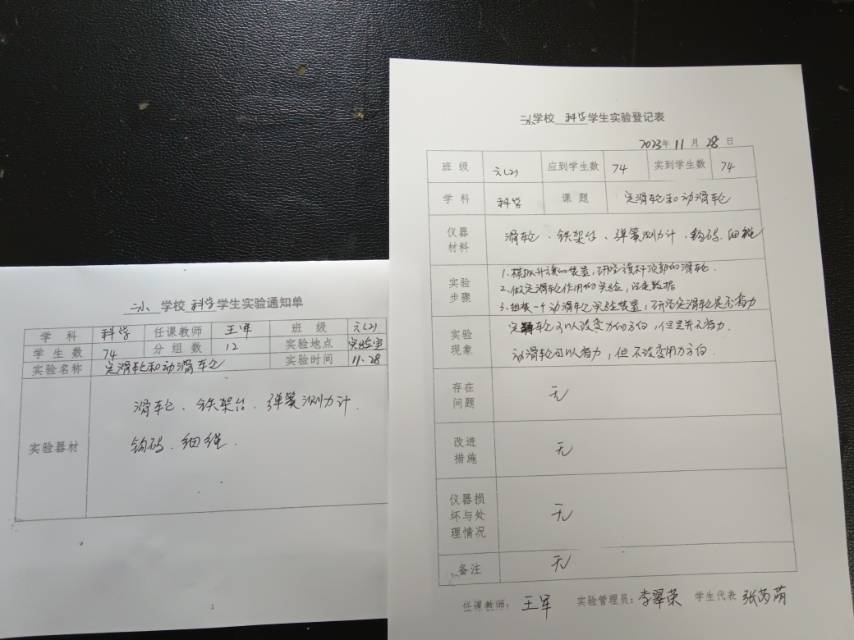 二小 学校 科学 学生实验通知单
学科 科学 任课教师 王军 班级 六(2)
学生数 74 分组数 12 实验地点 实验室
实验名称 定滑轮和动滑轮 实验时间 11.28
实验器材
滑轮、铁架台、弹簧测力计
钩码、细绳.
二小 学校 科学 学生实验登记表
2023年 11月 28日
班级 六(2) 应到学生数 74 实到学生数 74
学科 科学 课题 定滑轮和动滑轮
仪器材料 滑轮、铁架台、弹簧测力计、钩码、细绳
实验步骤
1.模拟升旗的装置,研究旗杆顶部的滑轮.
2.做定滑轮作用的实验,记录数据
3.组装一个动滑轮实验装置,研究定滑轮是否省力
实验现象
定滑轮可以改变力的方向,但是并不省力.
动滑轮可以省力,但不改变用力方向.
存在问题 无
改进措施 无
仪器损坏与处理情况 无
备注 无
任课教师: 王军 实验管理员: 李翠荣 学生代表